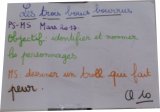 Les trois boucs bourrus
PS-MS Mars 2017
Objectif: identifier et nommer
les personnages
MS: dessiner un troll qui fait
peur